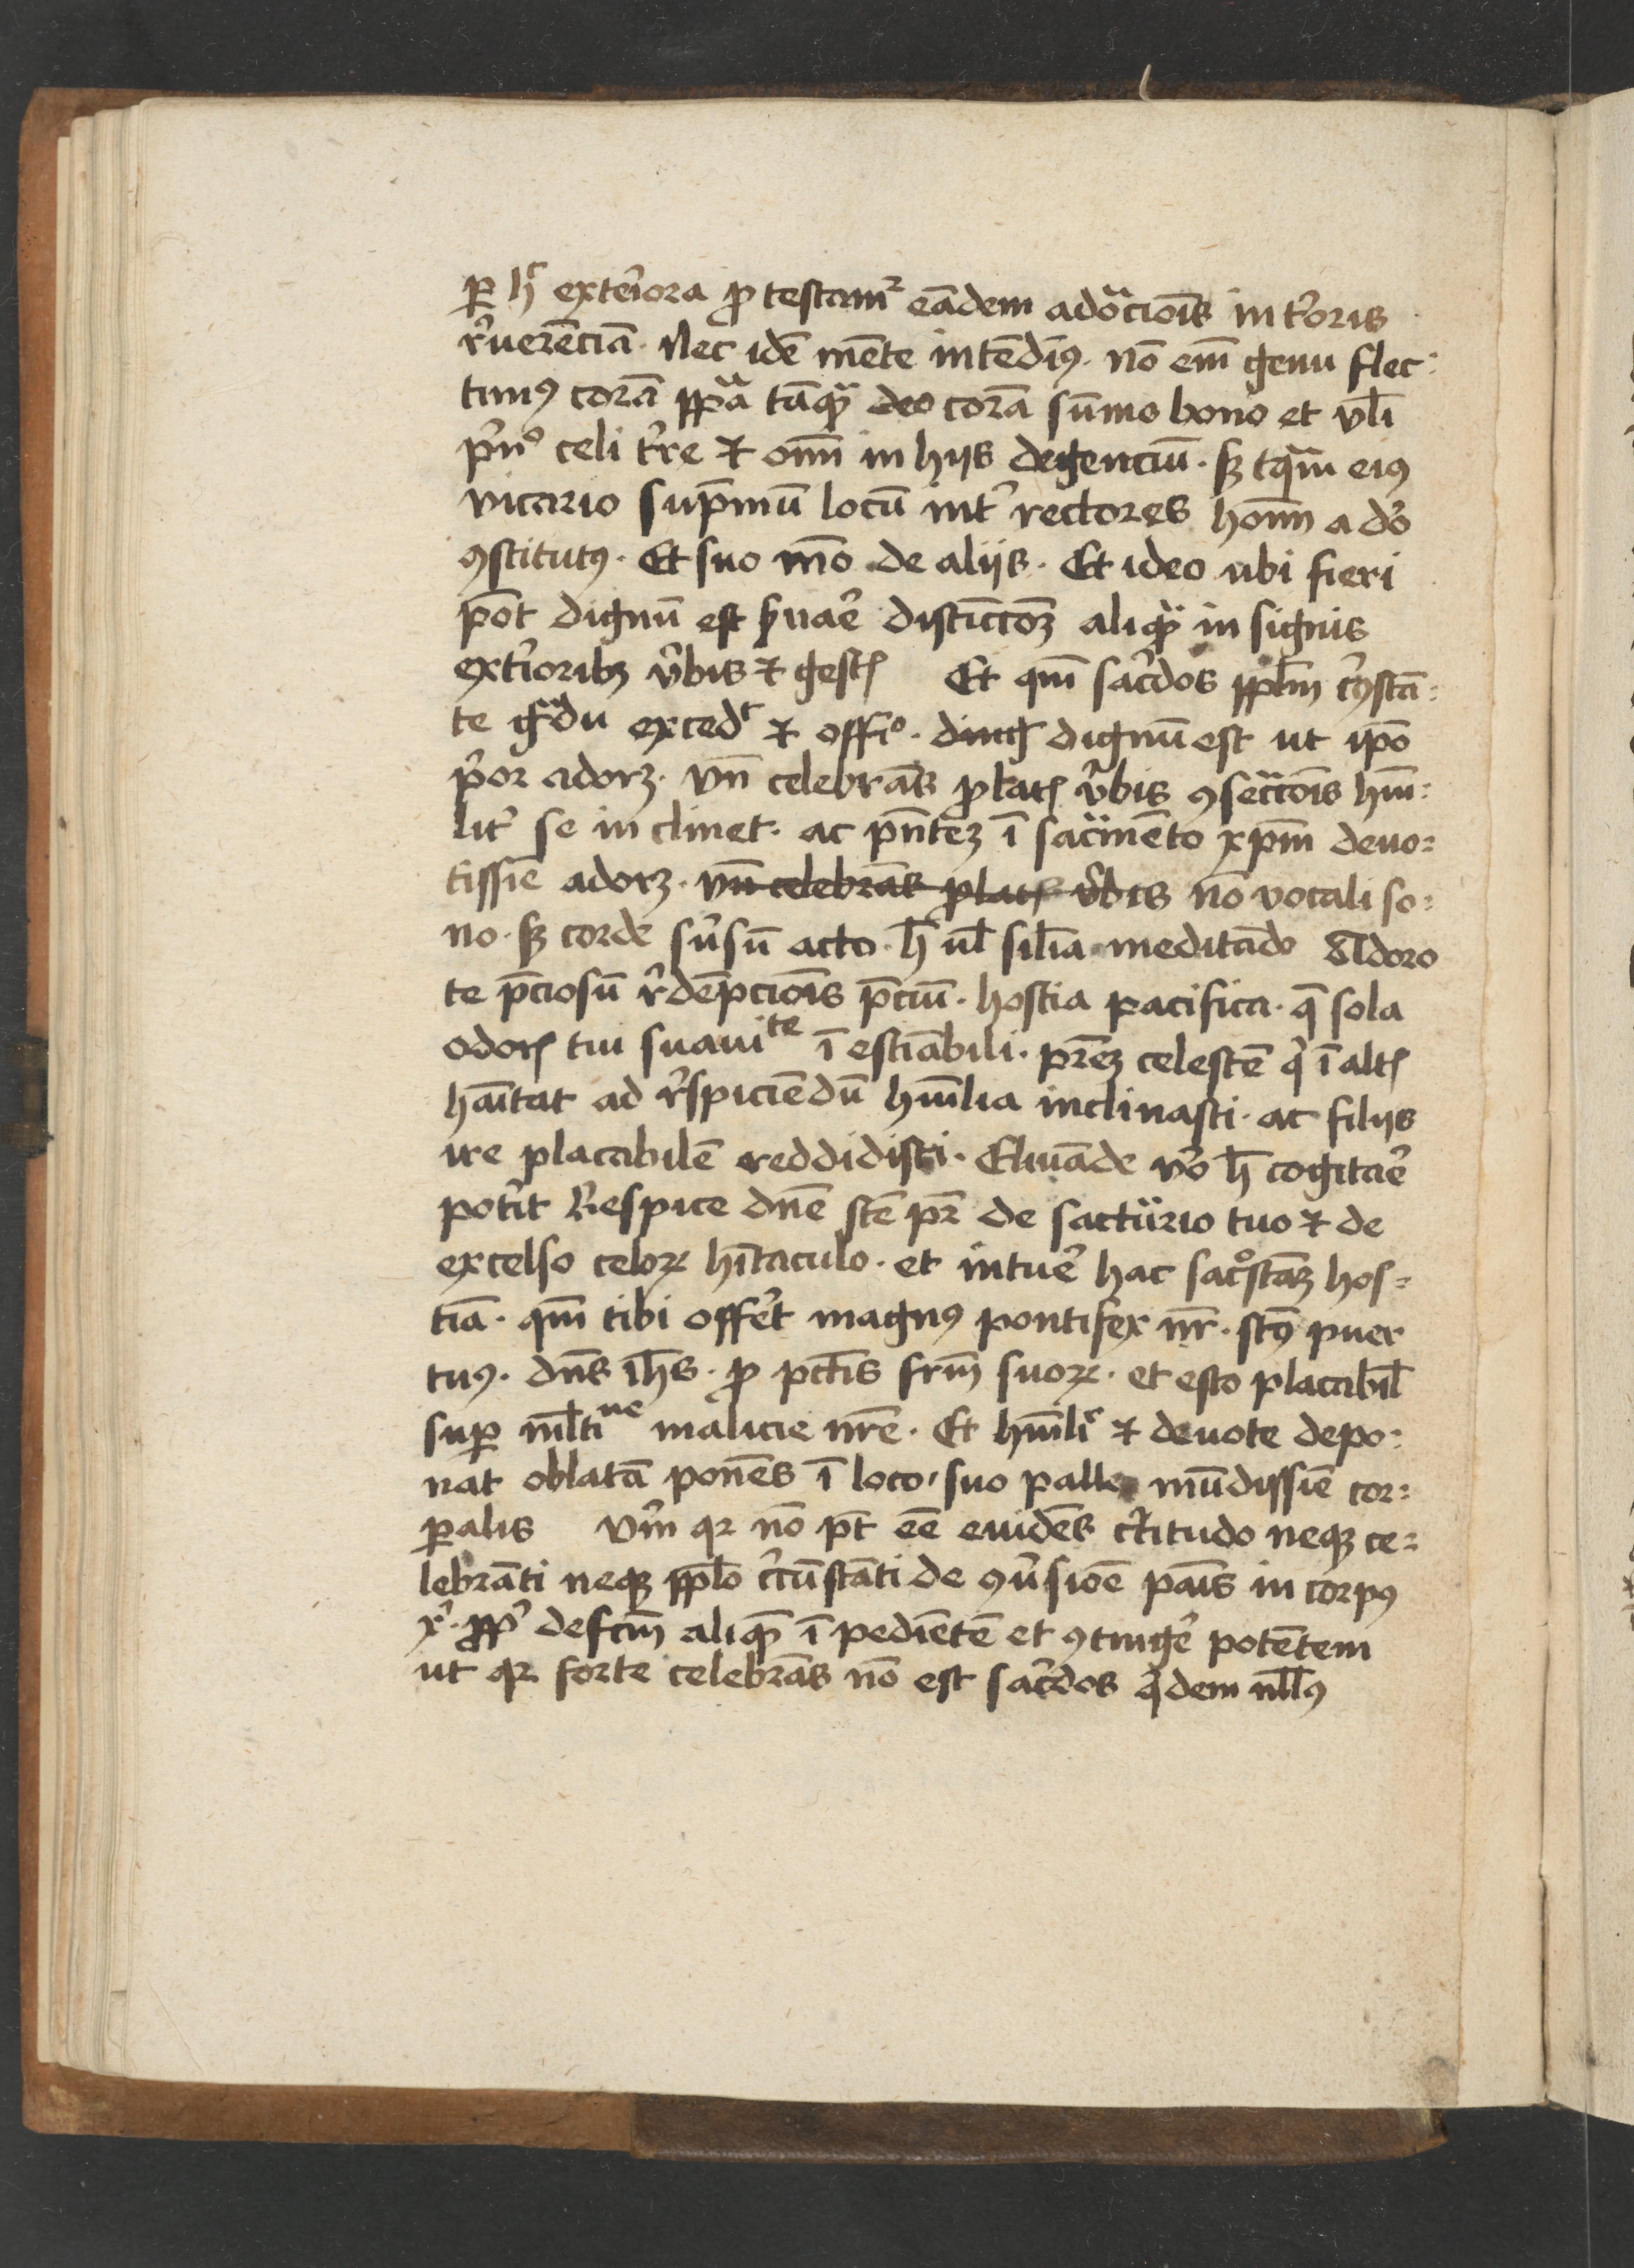 ꝑ hͨ exteriora ꝓtestamᷣ eādem adoᷓcionis in t̓oris
r̓uerēciā · Nec idē mēte intēdim⁹ · nō em̄ genu flec:
tim⁹ corā ppᷓa tāqᷓ deo corā sūmo bono et vl̄i
p̓nᵒ celi t̓re ⁊ om̄ in hijs degenciū · sꝫ tqᷓm ei⁹
vicario sup̄mū locū int̓ rectores hom̄ a deo
ꝯstitut⁹ · Et suo mō de aliis · Et ideo ubi fieri
pōt dignū est ẜuar̄e distīctōꝫ aliqᷓ in signis
ext̓ioribꝫ v̓bis ⁊ gestꝭ Et qm̄ sac̓dos ppl̄m c̓ꝯstā:
te gᷓdu excedᵗ ⁊ offiᵒ · dinḡ dignū est ut ip̄o
p̓or adorꝫ · vn̄ celebrās ꝓlatꝭ v̓bis ꝯsecᷓcōis hm̄:
lit̓ se inclinet · ac pn̄tēꝫ ī sacᷓmēto xp̄m deuo:
tissīe adorꝫ · vn̄ celebrās ꝓlatꝭ v̓bis nō vocali so:
no · sꝫ corde sv̓sū acto · h̄ ul̄ sil̄ia meditādo Adoro
te p̄ciosū r̓dēpcionis p̄ciū · hostia pacifica · q̄ sola
odorꝭ tui suauiᵗᵉ ī estīabili · pr̄eꝫ celestē qͥ ī altꝭ
hāitat ad r̓spiciēdū hm̄ilia inclinasti · ac filijs
ire placabilē reddidisti · Eleuāde v̓o h̄ cogitar̄e
pot̓it Respice dn̄e stē pr̄ de sactūrio tuo ⁊ de
excelso celoꝝ hītaculo · et intuer̄e hac sacͦstāꝫ hos:
tiā · qm̄ tibi offert magn⁹ pontifex nr̄ · stꝰ puer
tu⁹ · dn̄s ih̄s · ꝓ pctīs frm̄ suoꝝ · et esto placabil̄
suꝑ ml̄tiⁿᵉ malicie nr̄e · Et hm̄ilͥ ⁊ deuote depo:
nat oblatā ponēs ī loco suo palle mūdissīe cor:
ꝑalis Vm̄ qꝛ nō pt̄ ēe euidēs c̓titudo neqꝫ ce:
lebrāti neqꝫ ppl̄o c̓cūstāti de ꝯv̓sione panis in corp⁹
xͥ · ꝓpᷣ defcm̄ aliquē īpediētē et ꝯtinger̄e potētem
ut qꝛ forte celebrās nō est sac̓dos qͥdem null⁹